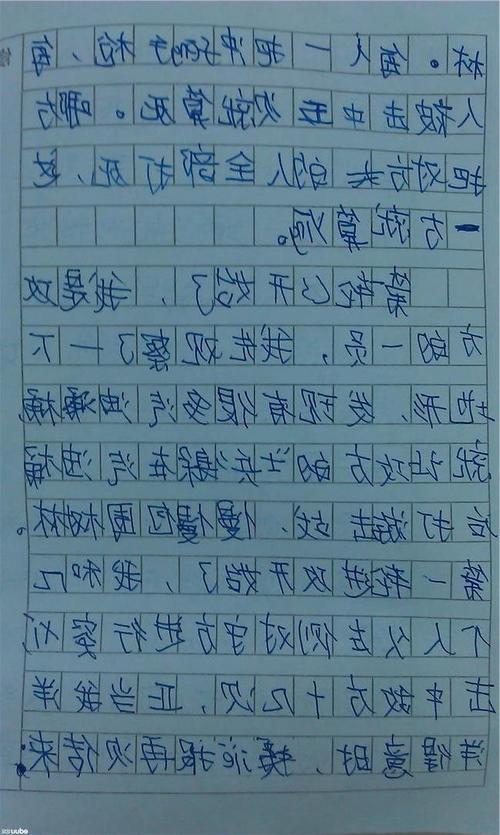 林。每人一把冲锋枪,每
人被击中五次就算死。哪方
把对方的人全部打死,这
一方就算赢。
轮已开始了,我是攻
方的一员,我先观察了一下
地形,发现有很多汽油桶
就让攻方的士兵躲在汽油桶
后打游击战,慢慢包围树林。
第一轮进攻开始了,我和几
个人从左侧对守方进行
击中敌方十几次,正当我洋
洋得意时,捷报再次传来